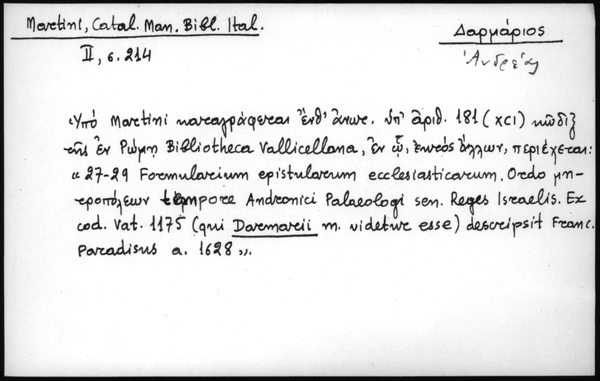 Martini, Catal. Man. Bibl. Ital.
II, σ. 214
Δαρμάριος
Ἀνδρέας
Ὑπό Martini καταγράφεται ἔνθ' ἄνωτ. ὑπ' ἀριθ. 181 (XCI) κῶδιξ
τῆς ἐν Ρώμῃ Bibliotheca Vallicellana, ἐν ᾧ, ἐκτός ἄλλων, περιέχεται:
« 27-29 Formularium epistularum ecclesiasticarum. Ordo μη-
τροπόλεων tempore Andronici Palaeologi sen. Reges Israelis. Ex
cod. Vat. 1175 (qui Darmarii m. videtur esse) descripsit Franc.
Paradisus a. 1628 ».